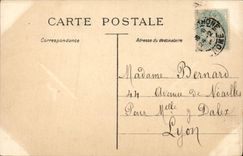 CARTE POSTALE
Correspondance
Adresse du destinataire
Madame Bernard
44 Avenue de Noailles
Pour Mlle J Dalex
Lyon